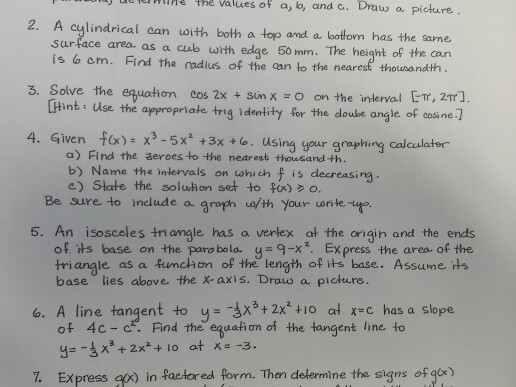 the values of a, b, and c. Draw a picture.
2. A cylindrical can with both a top and a bottom has the same
surface area as a cub with edge 50 mm. The height of the can
is 6 cm. Find the radius of the can to the nearest thousandth.
3. Solve the equation cos 2x + sin x = 0 on the interval [-π, 2π].
[Hint: Use the appropriate trig identity for the doube angle of cosine.]
4. Given f(x) = x³ - 5x² + 3x + 6. Using your graphing calculator
a) Find the zeroes to the nearest thousandth.
b) Name the intervals on which f is decreasing.
c) State the solution set to f(x) > 0.
Be sure to include a graph w/th your write-up.
5. An isosceles triangle has a vertex at the origin and the ends
of its base on the parabola y = 9-x². Express the area of the
triangle as a function of the length of its base. Assume its
base lies above the x-axis. Draw a picture.
6. A line tangent to y = -⅓x³ + 2x² + 10 at x=c has a slope
of 4c - c². Find the equation of the tangent line to
y = -⅓x³ + 2x² + 10 at x = -3.
7. Express g(x) in factored form. Then determine the signs of g(x)